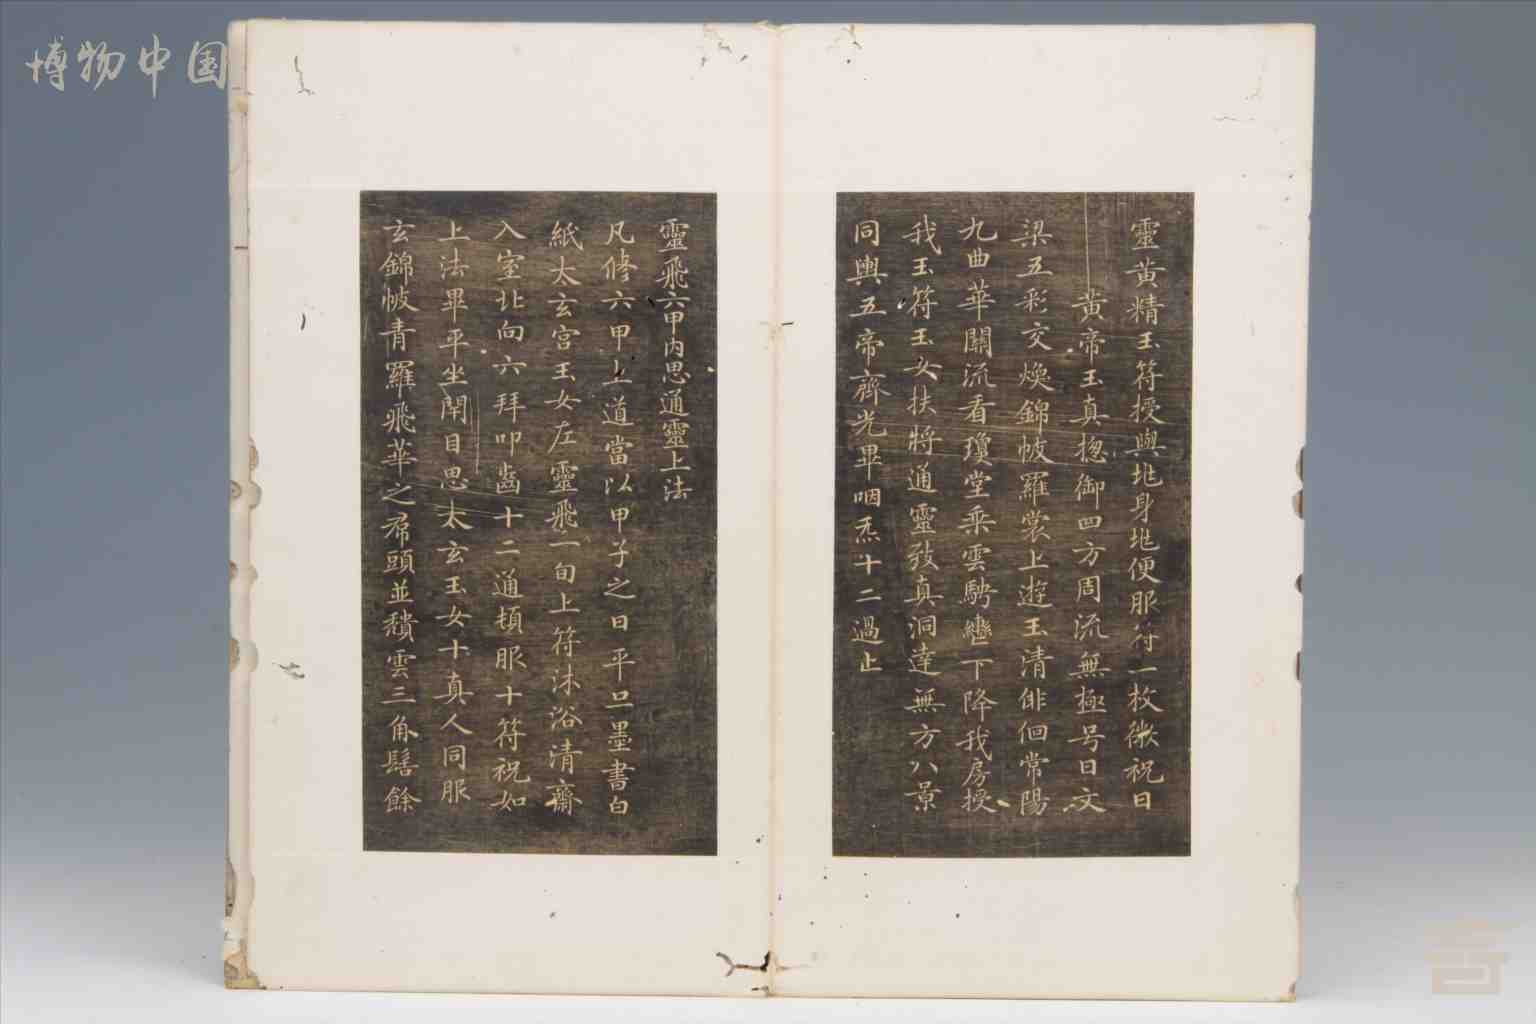 博物中国
靈黄精玉符授與地身地便服符一枚微祝曰
黄帝玉真摠御四方周流無極号曰文
梁五彩交煥錦帔羅裳上遊玉清俳佪常陽
九曲華關流看瓊堂乘雲騁轡下降我房授
我玉符玉女扶將通靈致真洞達無方八景
同輿五帝齊光畢咽炁十二過止
靈飛六甲内思通靈上法
凡修六甲上道當以甲子之日平旦墨書白
紙太玄宫玉女左靈飛一旬上符沐浴清齋
入室北向六拜叩齒十二通頓服十符祝如
上法畢平坐閉目思太玄玉女十真人同服
玄錦帔青羅飛華之帬頭並頹雲三角髻餘